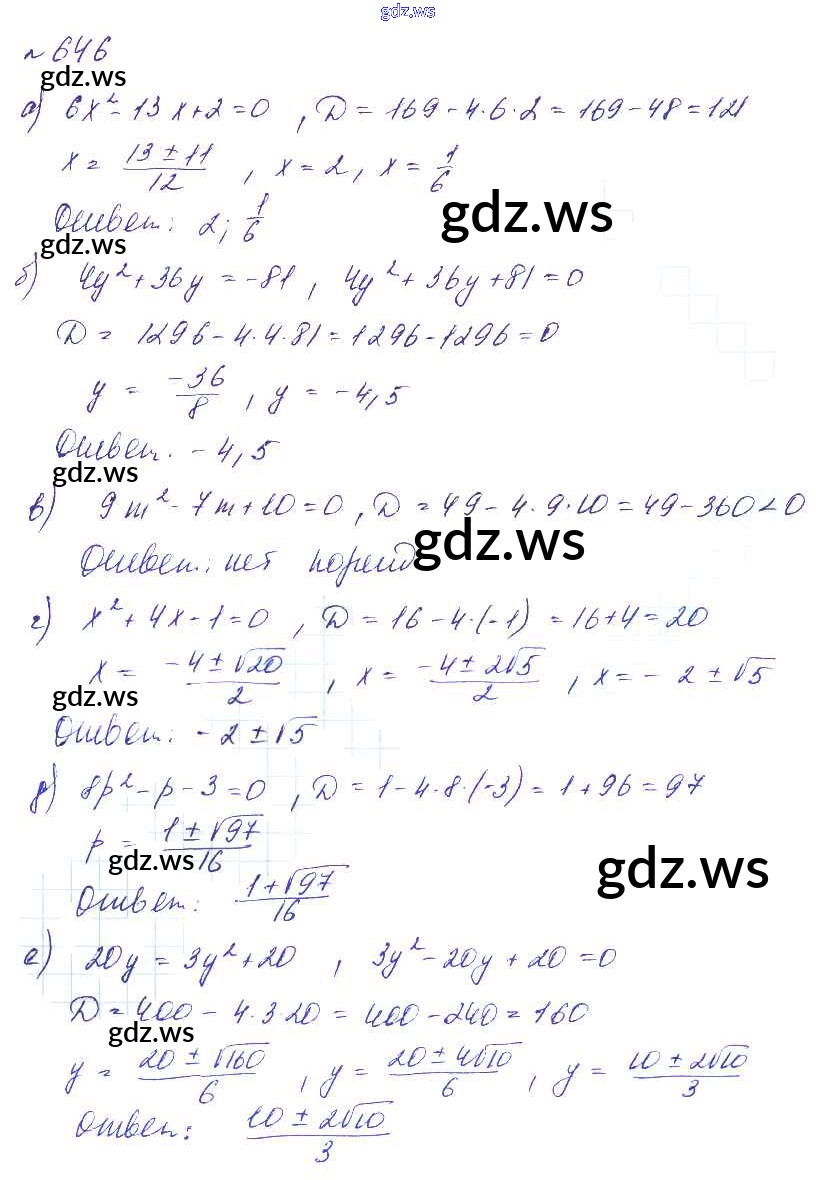 gdz.ws
№ 646
gdz.ws
а) 6x² - 13x + 2 = 0 , D = 169 - 4·6·2 = 169 - 48 = 121
x = (13 ± 11)/12 , x = 2 , x = 1/6
Ответ: 2; 1/6
gdz.ws
gdz.ws
б) 4y² + 36y = -81 , 4y² + 36y + 81 = 0
D = 1296 - 4·4·81 = 1296 - 1296 = 0
y = -36/8 , y = -4,5
Ответ. -4,5
gdz.ws
в) 9m² - 7m + 10 = 0 , D = 49 - 4·9·10 = 49 - 360 < 0
gdz.ws
Ответ: нет корней
г) x² + 4x - 1 = 0 , D = 16 - 4·(-1) = 16 + 4 = 20
x = (-4 ± √20)/2 , x = (-4 ± 2√5)/2 , x = -2 ± √5
gdz.ws
Ответ: -2 ± √5
д) 8p² - p - 3 = 0 , D = 1 - 4·8·(-3) = 1 + 96 = 97
p = (1 ± √97)/16
gdz.ws
gdz.ws
Ответ: (1 + √97)/16
е) 20y = 3y² + 20 , 3y² - 20y + 20 = 0
D = 400 - 4·3·20 = 400 - 240 = 160
gdz.ws
y = (20 ± √160)/6 , y = (20 ± 4√10)/6 , y = (10 ± 2√10)/3
Ответ: (10 ± 2√10)/3